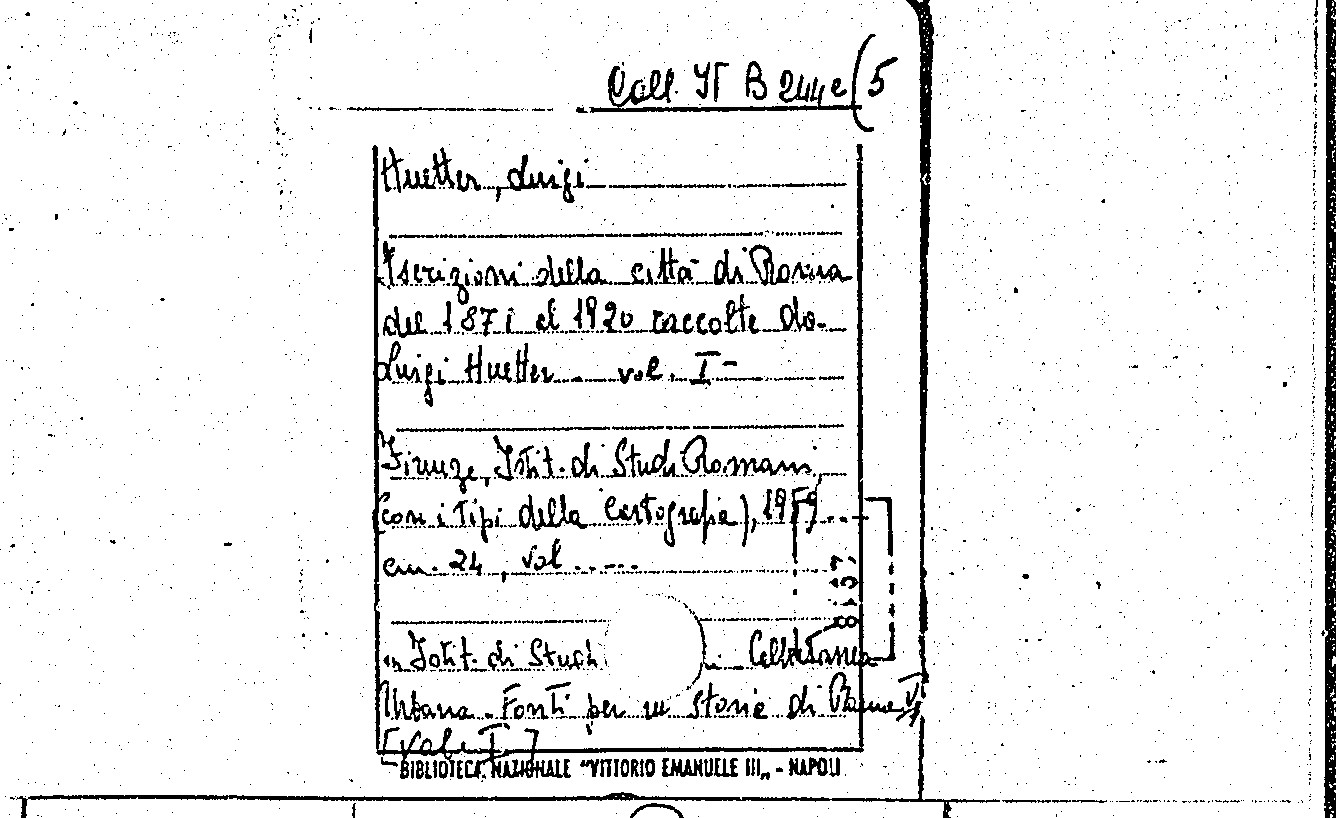 Coll. It B 244e (5
Huetter, Luigi
Iscrizioni della città di Roma
dal 1871 al 1920 raccolte da
Luigi Huetter. vol. I -
Firenze, Istit. di Studi Romani
(con i tipi della Cartografia), 1959
cm. 24, vol .....
Istit. di Studi
Urbana. Fonti per storia di Roma
[vol. I]
BIBLIOTECA NAZIONALE "VITTORIO EMANUELE III„ - NAPOLI